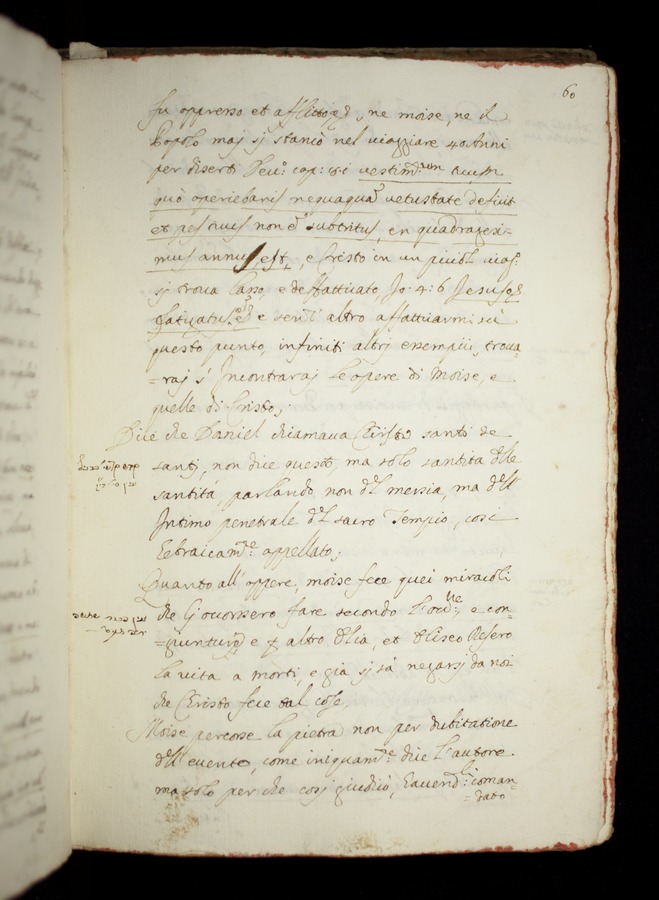 60
fu opresso et afflitto, ne moise, ne il
Popolo maj si stancò nel viaggiare 40 Anni
per diserti Deu: cap: 8: vestim: tuum
quò operiebaris nequaqua vetustate defecit
et pes tuus non e subtritus, en quadragesi=
mus annus, est, e Cristo in un piccol viag:
si trova lasso, e deffatticato, Jo: 4: 6 Jesus
fatigatus e senz' altro affatticarmi sù
questo punto, infiniti altri exempii, trova=
=raj s' Incontraraj le opere di Moise, e
quelle di Cristo;
Dice che Daniel chiamava Christo santo de
santi, non dice questo, ma solo santita delle
santità parlando non del messia, ma dell'
Intimo penetrale del sacro Tempio, cosi
hebraicam:te appellato;
Quanto all' oppere, moise fece quei miracoli
che li occorsero fare secondo l'occ:ne, e con=
=giunture e altro Elia, et Eliseo resero
la vita a morti, e gia si sà negarsi da noi
che Christo fece tal cose,
Moise percosse la pietra non per dubitatione
dell' evento, come iniquam:te dice l'autore
ma solo per che cosi giudicò, havend: coman=
=dato